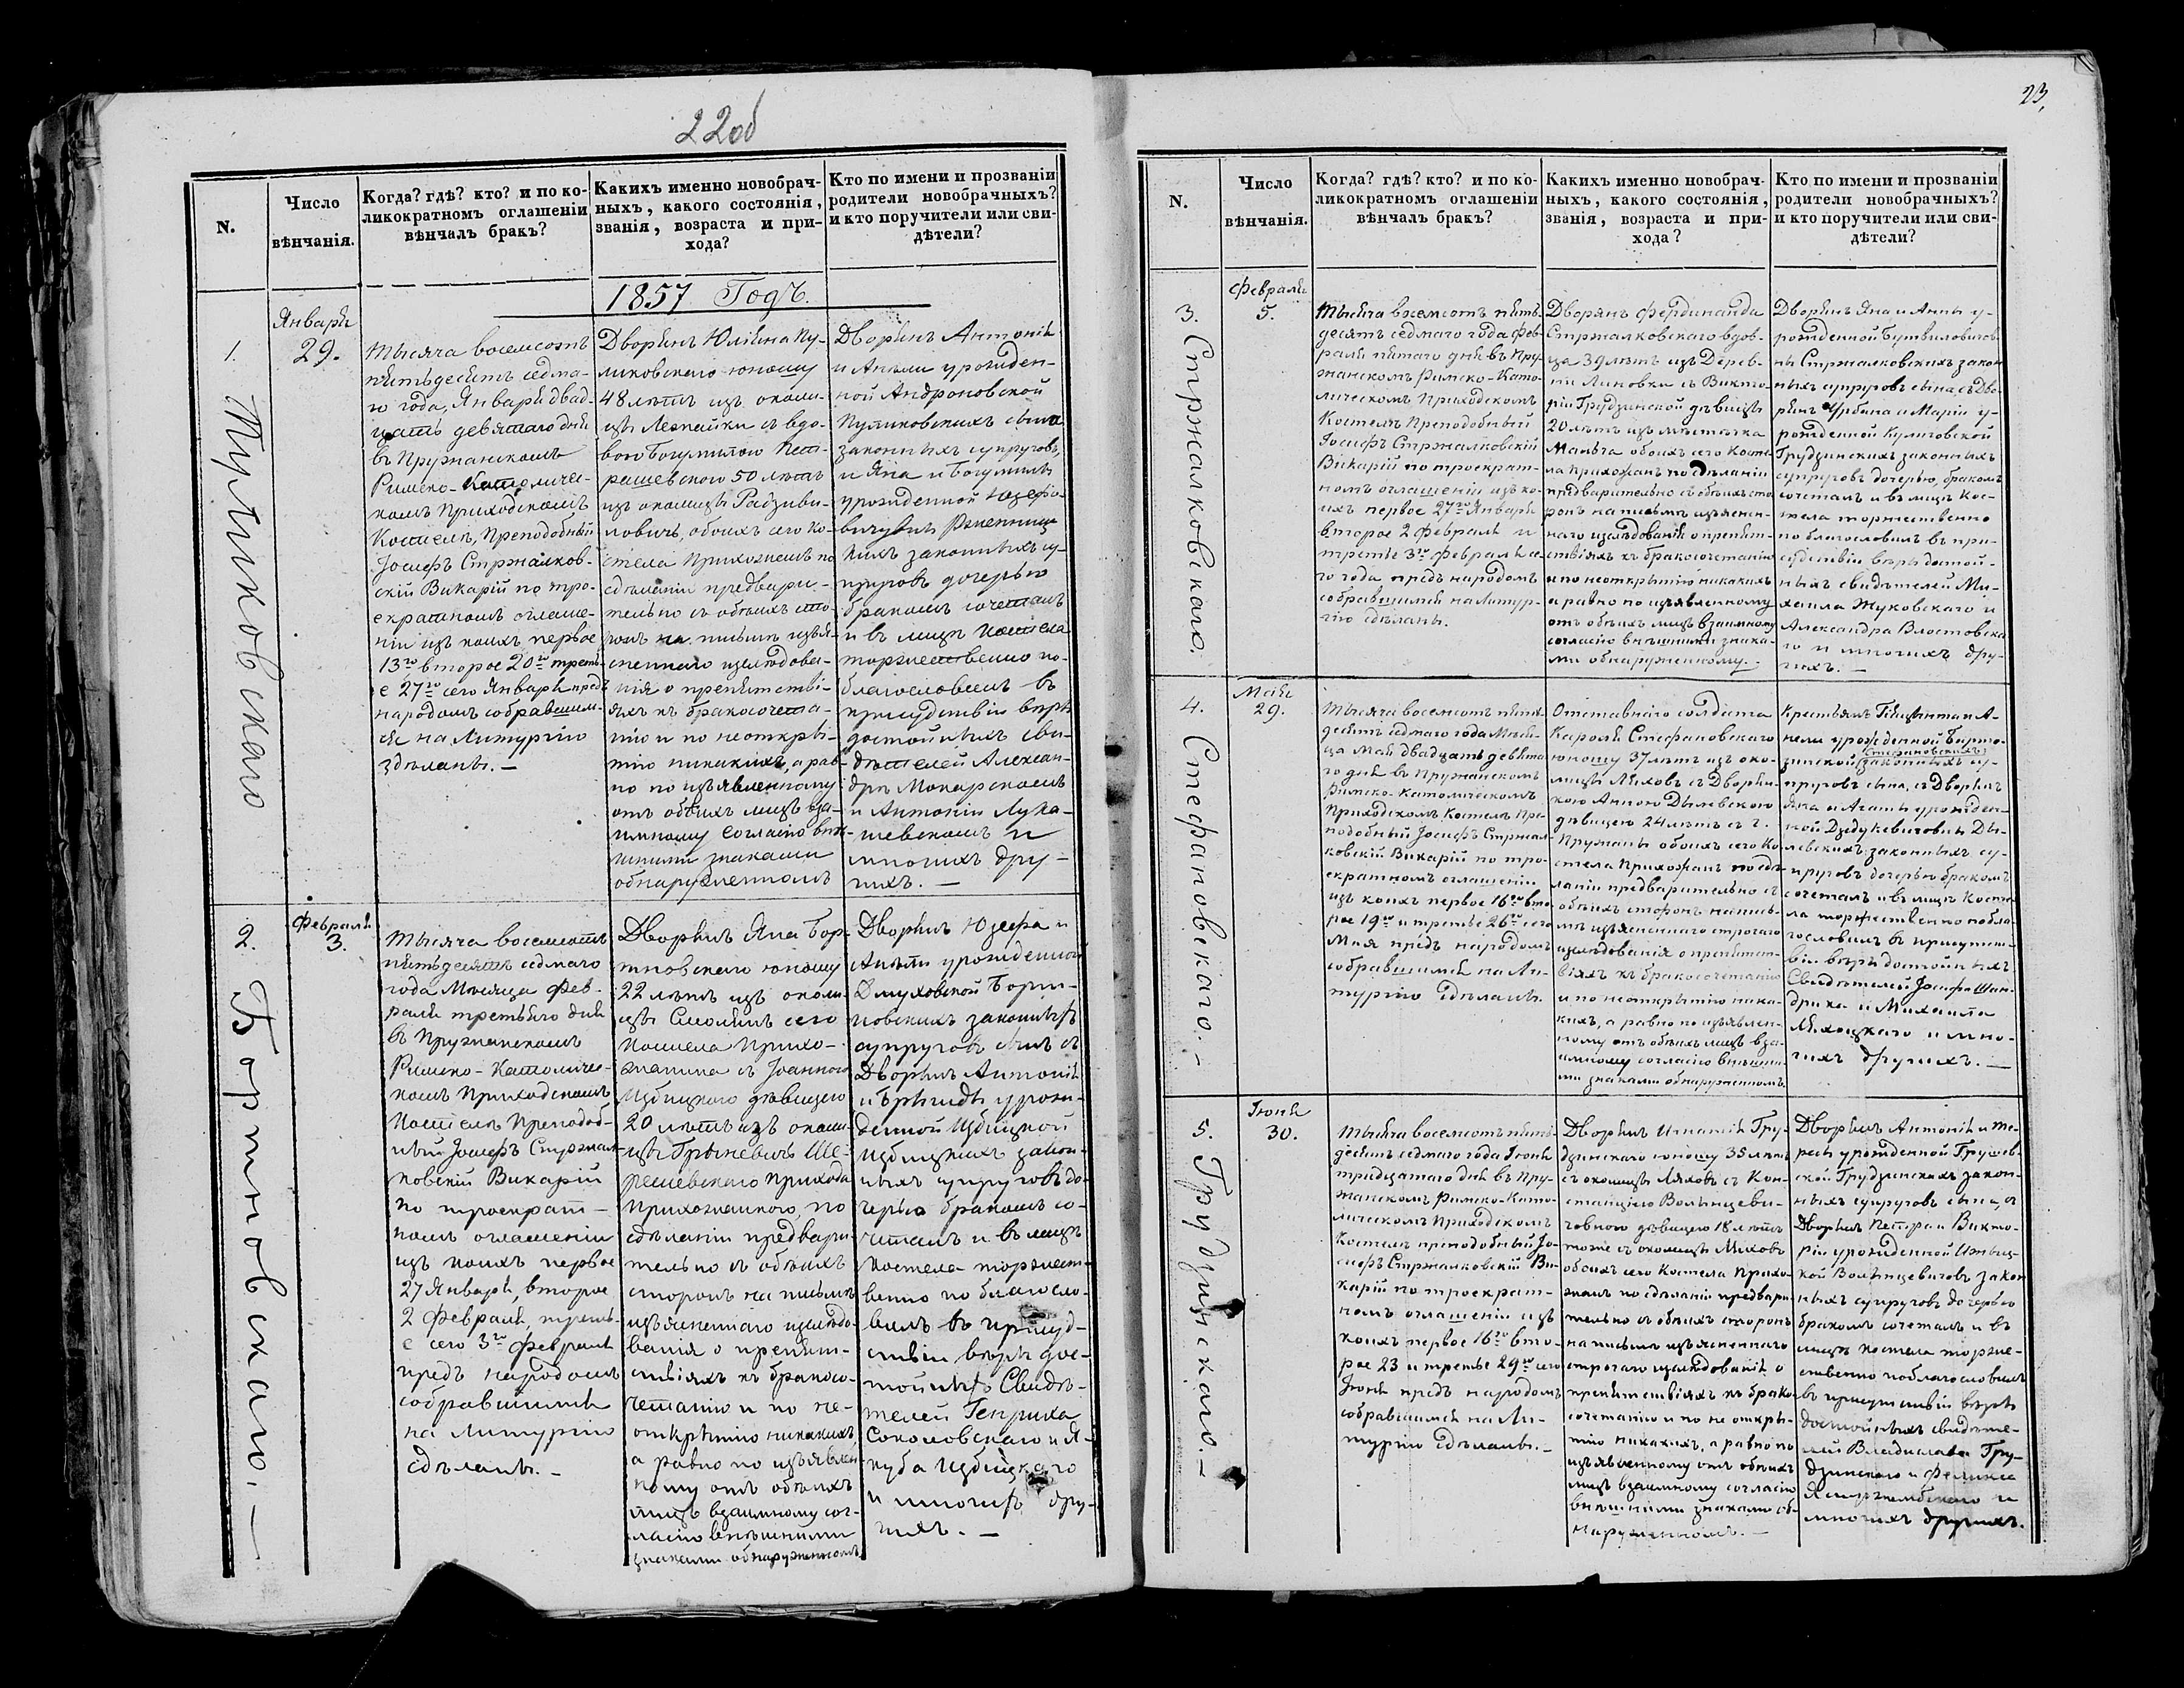 22об
N.
Число
вѣнчанія.
Когда? гдѣ? кто? и по ко-
ликократномъ оглашеніи
вѣнчалъ бракъ?
Какихъ именно новобрач-
ныхъ, какого состоянія,
званія, возраста и при-
хода?
Кто по имени и прозваніи
родители новобрачныхъ?
и кто поручители или сви-
дѣтели?
1857 Годъ.
1.
Января
29.
Пуликовскаго
Тысяча восемсотъ
пятьдесятъ седма-
го года, Января двад-
цать девятаго дня
въ Пружанскомъ
Римско-Католичес-
комъ Приходскомъ
Костелѣ, Преподобный
Іосифъ Стржалков-
скій Викарій по тро-
екратномъ оглаше-
ніи изъ коихъ первое
13го второе 20го треть-
е 27го сего Января предъ
народомъ собравшим-
ся на Литургію
здѣланы. —
Дворянъ Юліяна Пу-
ликовскаго юношу
48 лѣтъ изъ околи-
цы Лезнайки съ вдо-
вою Богумилою Пет-
рашевскою 50 лѣтъ
изъ околицы Радзиви-
ловичъ, обоихъ сего Ко-
стела Прихожанъ по
сдѣланіи предвари-
тельно съ обѣихъ сто-
ронъ на письмѣ изъя-
сненнаго изслѣдова-
нія о препятстві-
яхъ къ бракосочета-
нію и по неоткры-
тію никакихъ, а рав-
но по изъявленному
отъ обоихъ лицъ вза-
имному согласію внѣ-
шними знаками
обнаруженномъ
Дворянъ Антонія
и Анели урожден-
ной Андроновской
Пуликовскихъ сына
законныхъ супруговъ,
и Яна и Богумилы
урожденной Юзефо-
вичувны Рженниц-
кихъ законныхъ су-
пруговъ дочерью
бракомъ сочеталъ
и въ лицѣ Костела
торжественно по-
благословилъ въ
присудствіи вѣры
достойныхъ сви-
дѣтелей Алексан-
дрѣ Макарскомъ
и Антоніи Лука-
шевскомъ и
многихъ дру-
гихъ. —
2.
Февраля
3.
Бортновскаго. —
Тысяча восемсотъ
пятьдесятъ седмаго
года Мѣсяца Фев-
раля третьяго дня
въ Пружанскомъ
Римско-Католичес-
комъ Приходскомъ
Костелѣ Преподоб-
ный Іосифъ Стржал-
ковскій Викарій
по троекрат-
номъ оглашеніи
изъ коихъ первое
27 Января, второе
2 Февраля, треть-
е сего 3го Февраля
предъ народомъ
собравшимся
на Литургію
сдѣланы. —
Дворянъ Яна Бор-
тновскаго юношу
22 лѣтъ изъ околи-
цы Смолянъ сего
Костела Прихо-
жанина съ Іоанною
Избицкою дѣвицею
20 лѣтъ изъ околи-
цы Гриневичъ Ше-
решевскаго прихода
Прихожанкою, по
сдѣланіи предвари-
тельно съ обѣихъ
сторонъ на письмѣ
изъясненнаго изслѣдо-
ванія о препят-
ствіяхъ къ бракосо-
четанію и по не-
открытію никакихъ,
а равно по изъявлен-
ному отъ обѣихъ
лицъ взаимному сог-
ласію внѣшними
знаками обнаруженномъ
Дворянъ Юзефа и
Анны урожденной
Длуховской Борт-
новскихъ законныхъ
супруговъ сынъ съ
Дворянъ Антонія
и Бригиды урож-
денной Избицкой
Избицкихъ закон-
ныхъ супруговъ до-
черью бракомъ со-
четалъ и въ лицѣ
Костела торжест-
венно поблагосло-
вилъ въ присуд-
ствіи вѣры дос-
тойныхъ Свидѣ-
телей Генриха
Соколовскаго и Я-
куба Избицкаго
и многихъ дру-
гихъ. —
23,
N.
Число
вѣнчанія.
Когда? гдѣ? кто? и по ко-
ликократномъ оглашеніи
вѣнчалъ бракъ?
Какихъ именно новобрач-
ныхъ, какого состоянія,
званія, возраста и при-
хода?
Кто по имени и прозваніи
родители новобрачныхъ?
и кто поручители или сви-
дѣтели?
3.
Февраля
5.
Стржалковскаго.
Тысяча восемсотъ пять-
десятъ седмаго года Фев-
раля пятаго дня въ Пру-
жанскомъ Римско-Като-
лическомъ Приходскомъ
Костелѣ Преподобный
Іосифъ Стржалковскій
Викарій по троекрат-
номъ оглашеніи изъ ко-
ихъ первое 27го Января
второе 2 Февраля и
третіе 3го Февраля се-
го года предъ народомъ
собравшимся на Литур-
гію сдѣланы.
Дворянъ Фердинанда
Стржалковскаго вдов-
ца 39 лѣтъ изъ Дерев-
ни Линовки съ Викто-
ріи Грудзинской дѣвицы
20 лѣтъ изъ мѣстечка
Мальча обоихъ сего Косте-
ла Прихожанъ по сдѣланіи
предварительно съ обѣихъ сто-
ронъ на письмѣ изъяснен-
наго изслѣдованія о препят-
ствіяхъ къ бракосочетанію
и по неоткрытію никакихъ
а равно по изъявленному
отъ обѣихъ лицъ взаимному
согласію внѣшними знака-
ми обнаруженному. —
Дворянъ Яна и Анны у-
рожденной Бутвиловичов-
ны Стржалковскихъ закон-
ныхъ супруговъ сына, съ Дво-
рянъ Урбана и Маріи у-
рожденной Кулиговской
Грудзинскихъ законныхъ
супруговъ дочерью, бракомъ
сочеталъ и въ лицѣ Кос-
тела торжественно
поблагословилъ въ при-
судствіи вѣры достой-
ныхъ свидѣтелей Ми-
хаила Жуковскаго и
Александра Властовска-
го и многихъ дру-
гихъ. —
4.
Мая
29.
Стефановскаго. —
Тысяча восемсотъ пять-
десятъ седмаго года Мѣся-
ца Мая двадцать девята-
го дня въ Пружанскомъ
Римско-Католическомъ
Приходскомъ Костелѣ Пре-
подобный Іосифъ Стржал-
ковскій Викарій по тро-
екратномъ оглашеніи
изъ коихъ первое 16го вто-
рое 19го и третье 26го сего
Мая предъ народомъ
собравшимся на Ли-
тургію сдѣланы.
Отставнаго солдата
Кароля Стефановскаго
юношу 37 лѣтъ изъ око-
лицы Ляховъ съ Дворян-
кою Анною Дылевскою
дѣвицею 24 лѣтъ съ г.
Пружаны обоихъ сего Ко-
стела Прихожанъ по сдѣ-
ланіи предварительно съ
обѣихъ сторонъ на пись-
мѣ изъясненнаго строгаго
изслѣдованія о препятст-
віяхъ къ бракосочетанію
и по неоткрытію ника-
кихъ, а равно по изъявлен-
ному отъ обѣихъ лицъ вза-
имному согласію внѣшни-
ми знаками обнаруженномъ
Крестьянъ Гіяцынта и А-
нели урожденной Барто-
Стефановскихъ
зинской законныхъ су-
пруговъ сына, съ Дворянъ
Яна и Агаты урожден-
ной Дзедукевичовны Ды-
левскихъ законныхъ су-
пруговъ дочерью бракомъ
сочеталъ и въ лицѣ Косте-
ла торжественно побла-
гословилъ въ присутст-
віи вѣры достойныхъ
Свидѣтелей Іосифа Шан-
дриха и Михаила
Мяхоцкаго и мно-
гихъ другихъ. —
5.
Іюня
30.
Грудзинскаго. —
Тысяча восемсотъ пять-
десятъ седмаго года Іюня
тридцатаго дня въ Пру-
жанскомъ Римско-Като-
лическомъ Приходскомъ
Костелѣ преподобный Іо-
сифъ Стржалковскій Ви-
карій по троекрат-
номъ оглашеніи изъ
коихъ первое 16го вто-
рое 23 и третье 29го сего
Іюня предъ народомъ
собравшимся на Ли-
тургію сдѣланы. —
Дворянъ Игнатія Гру-
дзинскаго юношу 35 лѣтъ
съ околицы Ляховъ съ Кон-
станціею Волынцеви-
човною дѣвицею 18 лѣтъ
тоже съ околицы Ляховъ
обоихъ сего Костела Прихо-
жанъ по сдѣланіи предвари-
тельно съ обѣихъ сторонъ
на письмѣ изъясненнаго
строгаго изслѣдованія о
препятствіяхъ къ брако-
сочетанію и по не откры-
тію никакихъ, а равно по
изъявленному отъ обѣихъ
лицъ взаимному согласію
внѣшними знаками об-
наруженномъ. —
Дворянъ Антонія и Те-
ресы урожденной Грушев-
ской Грудзинскихъ закон-
ныхъ супруговъ сына, съ
Дворянъ Петра и Викто-
ріи урожденной Ижиц-
кой Волынцевичовъ закон-
ныхъ супруговъ дочерью
бракомъ сочеталъ и въ
лицѣ Костела торже-
ственно поблагословилъ
въ присутствіи вѣры
достойныхъ свидѣте-
лей Владислава Гру-
дзинскаго и Феликса
Ястржембскаго и
многихъ другихъ.